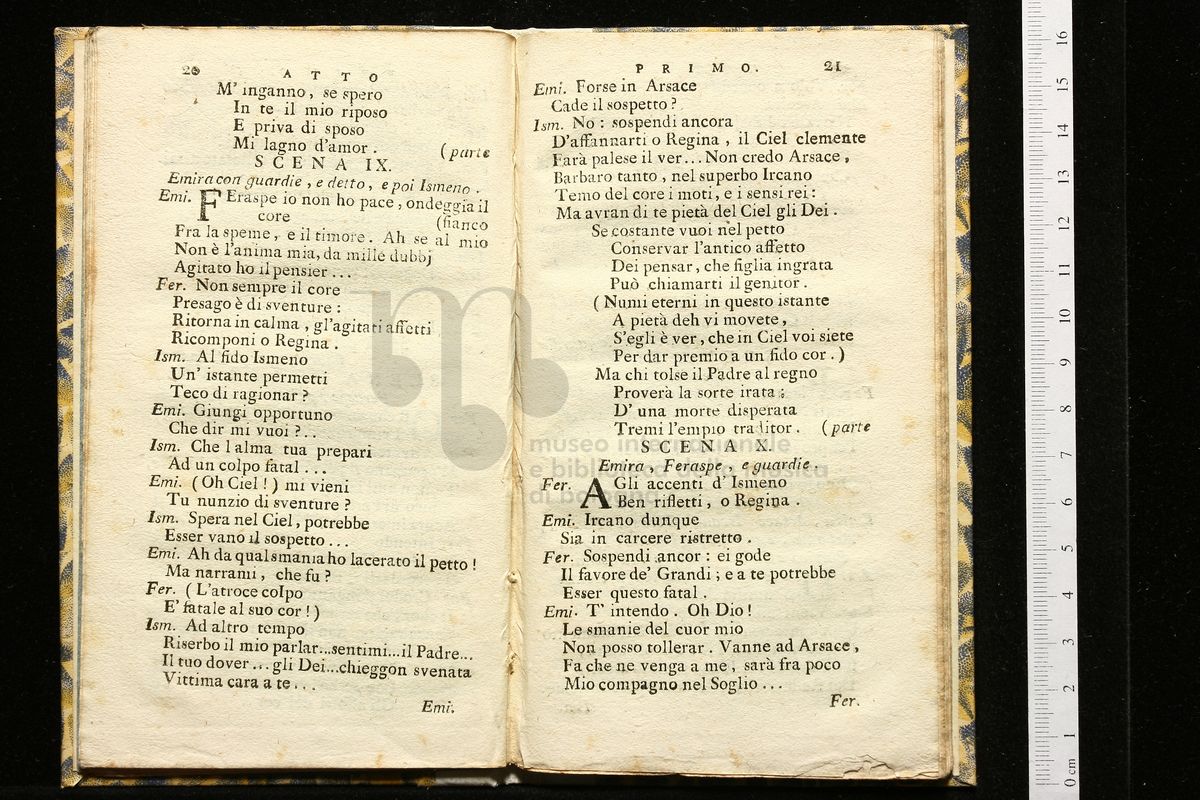 20 ATTO
M' inganno, se spero
In te il mio riposo
E priva di sposo
Mi lagno d'amor. (parte
SCENA IX.
Emira con guardie, e detto, e poi Ismeno.
Emi. FEraspe io non ho pace, ondeggia il
core (fianco
Fra la speme, e il timore. Ah se al mio
Non è l'anima mia, da mille dubbj
Agitato ho il pensier...
Fer. Non sempre il core
Presago è di sventure:
Ritorna in calma, gl'agitati affetti
Ricomponi o Regina.
Ism. Al fido Ismeno
Un' istante permetti
Teco di ragionar?
Emi. Giungi opportuno
Che dir mi vuoi?..
Ism. Che l alma tua prepari
Ad un colpo fatal...
Emi. (Oh Ciel!) mi vieni
Tu nunzio di sventure?
Ism. Spera nel Ciel, potrebbe
Esser vano il sospetto...
Emi. Ah da qual smania ho lacerato il petto!
Ma narrami, che fu?
Fer. (L'atroce colpo
E' fatale al suo cor!)
Ism. Ad altro tempo
Riserbo il mio parlar...sentimi...il Padre...
Il tuo dover...gli Dei...chieggon svenata
Vittima cara a te...
Emi.
PRIMO. 21
Emi. Forse in Arsace
Cade il sospetto?
Ism. No: sospendi ancora
D'affannarti o Regina, il Ciel clemente
Farà palese il ver... Non credo Arsace,
Barbaro tanto, nel superbo Ircano
Temo del core i moti, e i sensi rei:
Ma avran di te pietà del Ciel gli Dei.
Se costante vuoi nel petto
Conservar l'antico affetto
Dei pensar, che figlia ingrata
Può chiamarti il genitor.
(Numi eterni in questo istante
A pietà deh vi movete,
S'egli è ver, che in Ciel voi siete
Per dar premio a un fido cor.)
Ma chi tolse il Padre al regno
Proverà la sorte irata:
D' una morte disperata
Tremi l'empio traditor. (parte
SCENA X.
Emira, Feraspe, e guardie.
Fer. AGli accenti d' Ismeno
Ben rifletti, o Regina.
Emi. Ircano dunque
Sia in carcere ristretto.
Fer. Sospendi ancor: ei gode
Il favore de' Grandi; e a te potrebbe
Esser questo fatal.
Emi. T' intendo. Oh Dio!
Le smanie del cuor mio
Non posso tollerar. Vanne ad Arsace,
Fa che ne venga a me, sarà fra poco
Mio compagno nel Soglio...
Fer.
museo internazionale
e biblioteca della musica
di bologna
0 cm 1 2 3 4 5 6 7 8 9 10 11 12 13 14 15 16